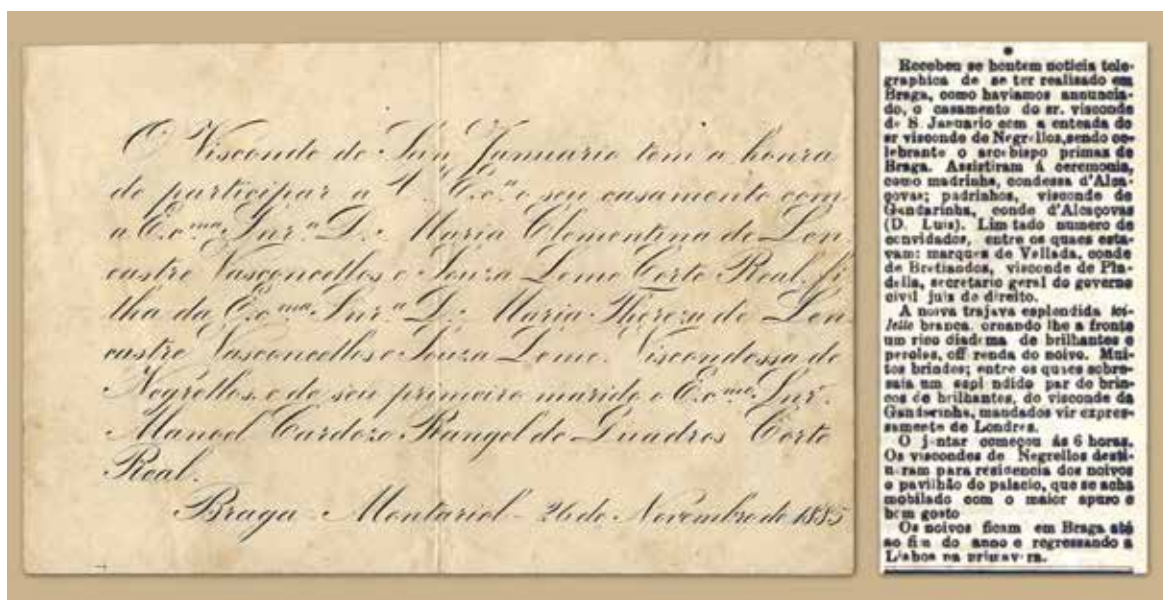 O Visconde de San Januario tem a honra
de participar a V. Ex.ª o seu casamento com
a Ex.ma Snr.ª D. Maria Clementina de Len
castre Vasconcellos e Souza Leme Corte Real, fi
lha da Ex.ma Snr.ª D. Maria Thereza de Len
castre Vasconcellos e Souza Leme. Viscondessa de
Negrellos, e de seu primeiro marido o Ex.mo Snr.
Manoel Cardozo Rangel de Quadros Corte
Real.
Braga - Montariol - 26 de Novembro de 1885
Recebeu se hontem noticia tele-
graphica de se ter realisado em
Braga, como haviamos annuncia-
do, o casamento do sr. visconde
de S Januario com a enteada do
sr visconde de Negrellos, sendo ce-
lebrante o arcebispo primas de
Braga. Assistiram á ceremonia,
como madrinha, condessa d'Alca-
çovas; padrinhos, visconde de
Gandarinha, conde d'Alcaçovas
(D. Luis). Lim tado numero de
convidados, entre os quaes esta-
vam: marques de Vallada, conde
de Bretiandos, visconde de Pin-
della, secretario geral do governo
civil juis do direito.
A noiva trajava esplendida toi-
lette branca, ornando lhe a fronte
um rico diadema de brilhantes e
perolas, off renda do noivo. Mui-
tos brindes; entre os quaes sobre-
saia um espl ndido par de brin-
cos de brilhantes, do visconde da
Gandarinha, mandados vir expres-
samente de Londres.
O j ntar começou ás 6 horas.
Os viscondes de Negrellos desti-
n ram para residencia dos noivos
o pavilhão do palacio, que se acha
mobilado com o maior apuro e
bom gosto
Os noivos ficam em Braga até
ao fim do anno e regressando a
Lisboa na primavera.